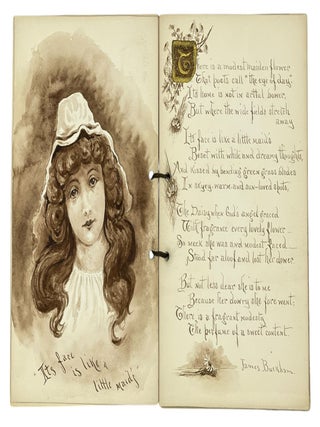 Its face
is like a
little maid's
There is a modest maiden flower
That poets call "the eye of day,"
Its home is not in actual bower,
But where the wide fields stretch
away
Its face is like a little maids
Beset with white and dreamy thoughts,
And kissed by bending green grass blades
In warm and sun-loved spots.
The Daisy when Gods angel graced
With fragrance every lovely flower
So meek she was and modest faced
Stood far aloof and lost her dower
But not less dear she is to me
Because her dowry she fore-went;
There is a fragrant modesty
The perfume of a sweet content.
James